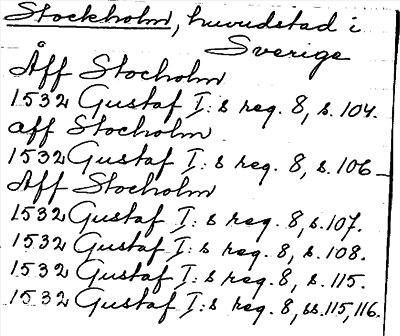 Stockholm, huvudstad i
Sverige
Åff Stocholm
1532 Gustaf I: s reg. 8, s. 104.
aff Stocholm
1532 Gustaf I: s reg. 8, s. 106-
Åff Stocholm
1532 Gustaf I: s reg. 8, s. 107.
1532 Gustaf I: s reg. 8, s. 108.
1532 Gustaf I: s reg. 8, s. 115.
1532 Gustaf I: s reg. 8, ss. 115, 116.